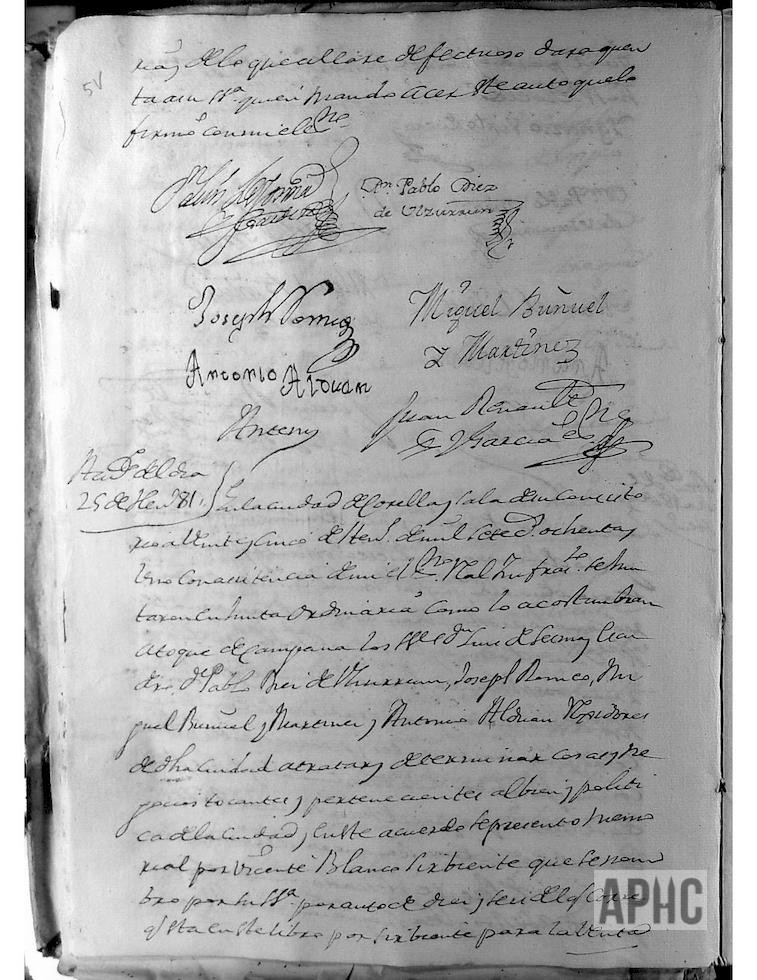 5V
rias de lo que allare defectuoso dara quen
ta a su SSª. quien mando acer este auto que lo
firmo con mi el Ssno
Dn. Pablo Diez
de Vzurrun
Joseph Romeo
Miguel Buñuel
y Martinez
Antonio Alduan
Ante mi
Juan
y Garcia Ssno
del dia
25 de Henº 81
En la ciudad de Corella y sala de su Consisto
rio a veinte y cinco de Henº. de mil Setes. ochenta y
uno con asistencia de mi el Ssno Real Ynfrasto. se Jun
taron en Junta ordinaria como lo acostumbran
a toque de campana los SSres Dn Luis de Sesma
Dn Pablo Diez de Vzurrun, Joseph Romeo, Mi
guel Buñuel y Martinez y Antonio Alduan Rexidores
de dha ciudad a tratar y determinar cosas y ne
gocios tocantes y pertenecientes al bien y politi
ca de la ciudad y en este acuerdo se presento memo
rial por Vicente Blanco sirbiente que se nom
bro por su SSª. por auto de diez y seis del
esta en este libro por sirbiente para la Venta
APHC